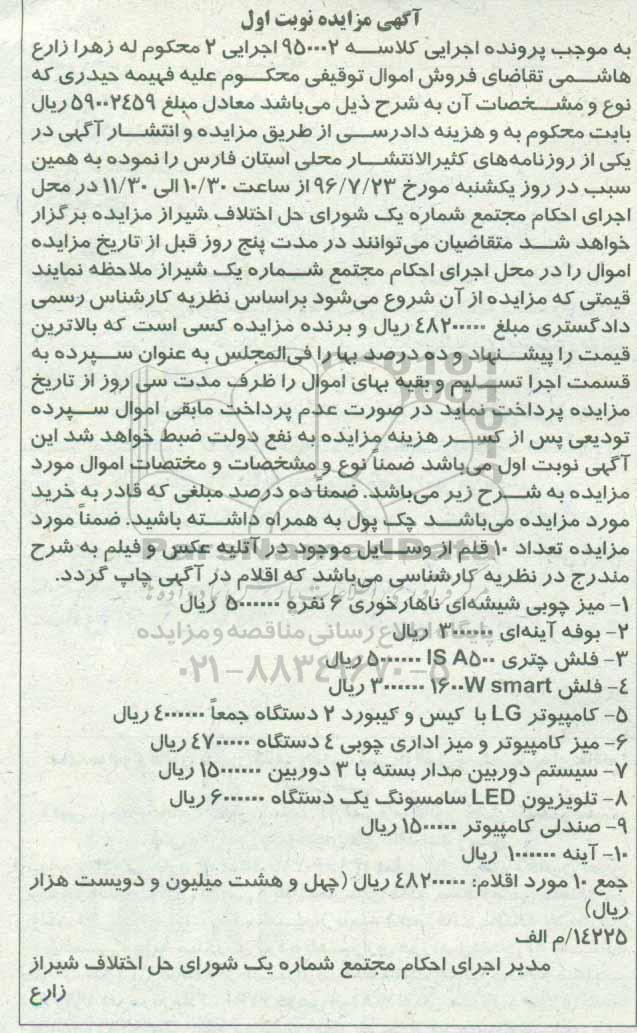 آگهی مزایده نوبت اول
به موجب پرونده اجرایی کلاسه ۹۵۰۰۰۲ اجرایی ۲ محکوم له زهرا زارع
هاشمی تقاضای فروش اموال توقیفی محکوم علیه فهیمه حیدری که
نوع و مشخصات آن به شرح ذیل می‌باشد معادل مبلغ ۵۹۰۰۲٤۵۹ ریال
بابت محکوم به و هزینه دادرسی از طریق مزایده و انتشار آگهی در
یکی از روزنامه‌های کثیرالانتشار محلی استان فارس را نموده به همین
سبب در روز یکشنبه مورخ ۹۶/۷/۲۳ از ساعت ۱۰/۳۰ الی ۱۱/۳۰ در محل
اجرای احکام مجتمع شماره یک شورای حل اختلاف شیراز مزایده برگزار
خواهد شد متقاضیان می‌توانند در مدت پنج روز قبل از تاریخ مزایده
اموال را در محل اجرای احکام مجتمع شماره یک شیراز ملاحظه نمایند
قیمتی که مزایده از آن شروع می‌شود براساس نظریه کارشناس رسمی
دادگستری مبلغ ٤۸۲۰۰۰۰۰ ریال و برنده مزایده کسی است که بالاترین
قیمت را پیشنهاد و ده درصد بها را فی‌المجلس به عنوان سپرده به
قسمت اجرا تسلیم و بقیه بهای اموال را ظرف مدت سی روز از تاریخ
مزایده پرداخت نماید در صورت عدم پرداخت مابقی اموال سپرده
تودیعی پس از کسر هزینه مزایده به نفع دولت ضبط خواهد شد این
آگهی نوبت اول می‌باشد ضمناً نوع و مشخصات و مختصات اموال مورد
مزایده به شرح زیر می‌باشد. ضمناً ده درصد مبلغی که قادر به خرید
مورد مزایده می‌باشد چک پول به همراه داشته باشید. ضمناً مورد
مزایده تعداد ۱۰ قلم از وسایل موجود در آتلیه عکس و فیلم به شرح
مندرج در نظریه کارشناسی می‌باشد که اقلام در آگهی چاپ گردد.
۱- میز چوبی شیشه‌ای ناهارخوری ۶ نفره ۵۰۰۰۰۰۰ ریال
۲- بوفه آینه‌ای ۳۰۰۰۰۰۰ ریال
۳- فلش چتری IS A۵۰۰ ۵۰۰۰۰۰۰ ریال
٤- فلش ۱۶۰۰W smart ۳۰۰۰۰۰۰ ریال
۵- کامپیوتر LG با کیس و کیبورد ۲ دستگاه جمعاً ٤۰۰۰۰۰۰ ریال
۶- میز کامپیوتر و میز اداری چوبی ٤ دستگاه ٤۷۰۰۰۰۰ ریال
۷- سیستم دوربین مدار بسته با ۳ دوربین ۱۵۰۰۰۰۰۰ ریال
۸- تلویزیون LED سامسونگ یک دستگاه ۶۰۰۰۰۰۰ ریال
۹- صندلی کامپیوتر ۱۵۰۰۰۰۰ ریال
۱۰- آینه ۱۰۰۰۰۰۰ ریال
جمع ۱۰ مورد اقلام: ٤۸۲۰۰۰۰۰ ریال (چهل و هشت میلیون و دویست هزار
ریال)
۱٤۲۲۵/م الف
مدیر اجرای احکام مجتمع شماره یک شورای حل اختلاف شیراز
زارع
ParsNamadData
پایگاه اطلاع رسانی مناقصه و مزایده
۰۲۱-۸۸۳٤۹۶۷۰-۵